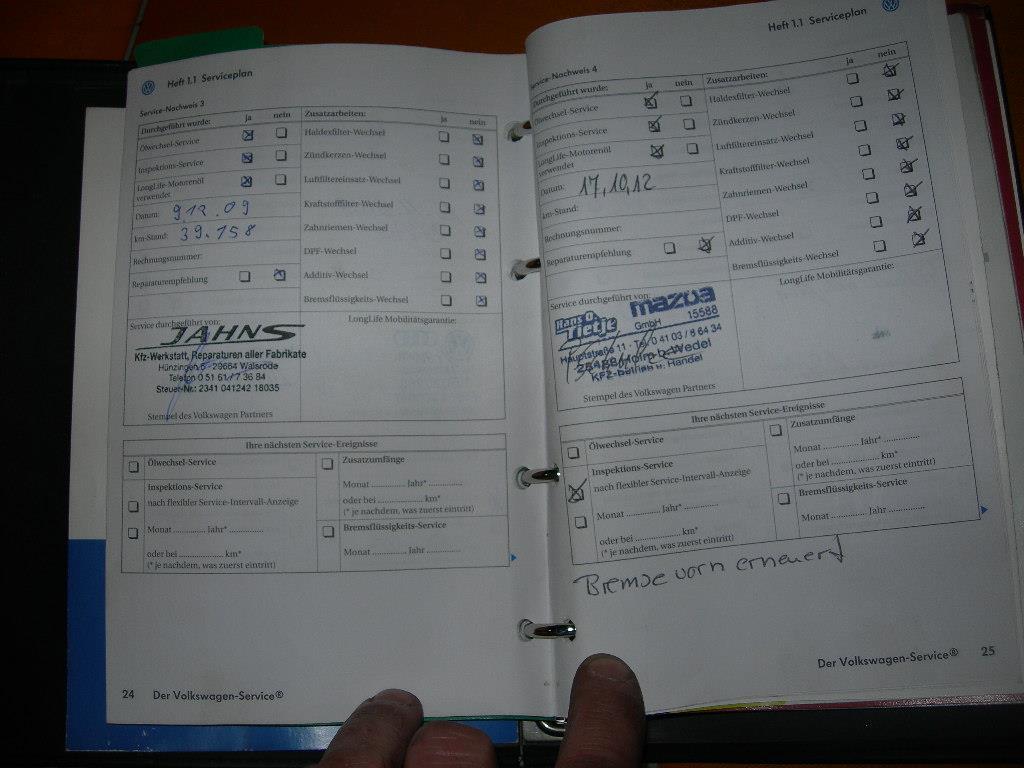 Heft 1.1 Serviceplan
Service-Nachweis 3
Durchgeführt wurde: ja nein
Ölwechsel-Service
Inspektions-Service
LongLife-Motorenöl
verwendet
Datum: 9.12.09
km-Stand: 39.158
Rechnungsnummer:
Reparaturempfehlung
Zusatzarbeiten: ja nein
Haldexfilter-Wechsel
Zündkerzen-Wechsel
Luftfiltereinsatz-Wechsel
Kraftstofffilter-Wechsel
Zahnriemen-Wechsel
DPF-Wechsel
Additiv-Wechsel
Bremsflüssigkeits-Wechsel
Service durchgeführt von:
JAHNS
Kfz-Werkstatt, Reparaturen aller Fabrikate
Hünzingen 6 - 29664 Walsrode
Telefon 0 51 61 / 7 36 84
Steuer-Nr.: 2341 041242 18035
Stempel des Volkswagen Partners
LongLife Mobilitätsgarantie:
Ihre nächsten Service-Ereignisse
Ölwechsel-Service
Inspektions-Service
nach flexibler Service-Intervall-Anzeige
Monat ............ Jahr* ............
oder bei ................ km*
(* je nachdem, was zuerst eintritt)
Zusatzumfänge
Monat ............ Jahr* ............
oder bei ................ km*
(* je nachdem, was zuerst eintritt)
Bremsflüssigkeits-Service
Monat ............ Jahr ............
24 Der Volkswagen-Service®
Heft 1.1 Serviceplan
Service-Nachweis 4
Durchgeführt wurde: ja nein
Ölwechsel-Service
Inspektions-Service
LongLife-Motorenöl
verwendet
Datum: 17.10.12
km-Stand:
Rechnungsnummer:
Reparaturempfehlung
Zusatzarbeiten: ja nein
Haldexfilter-Wechsel
Zündkerzen-Wechsel
Luftfiltereinsatz-Wechsel
Kraftstofffilter-Wechsel
Zahnriemen-Wechsel
DPF-Wechsel
Additiv-Wechsel
Bremsflüssigkeits-Wechsel
Service durchgeführt von:
Hans O. Tietje GmbH mazda 15588
Hauptstraße 11 · Tel. 0 41 03 / 8 64 34
25488 Holm b. Wedel
KFZ-Betrieb u. Handel
Stempel des Volkswagen Partners
LongLife Mobilitätsgarantie:
Ihre nächsten Service-Ereignisse
Ölwechsel-Service
Inspektions-Service
nach flexibler Service-Intervall-Anzeige
Monat ............ Jahr* ............
oder bei ................ km*
(* je nachdem, was zuerst eintritt)
Zusatzumfänge
Monat ............ Jahr* ............
oder bei ................ km*
(* je nachdem, was zuerst eintritt)
Bremsflüssigkeits-Service
Monat ............ Jahr ............
Bremse vorn erneuert
Der Volkswagen-Service® 25